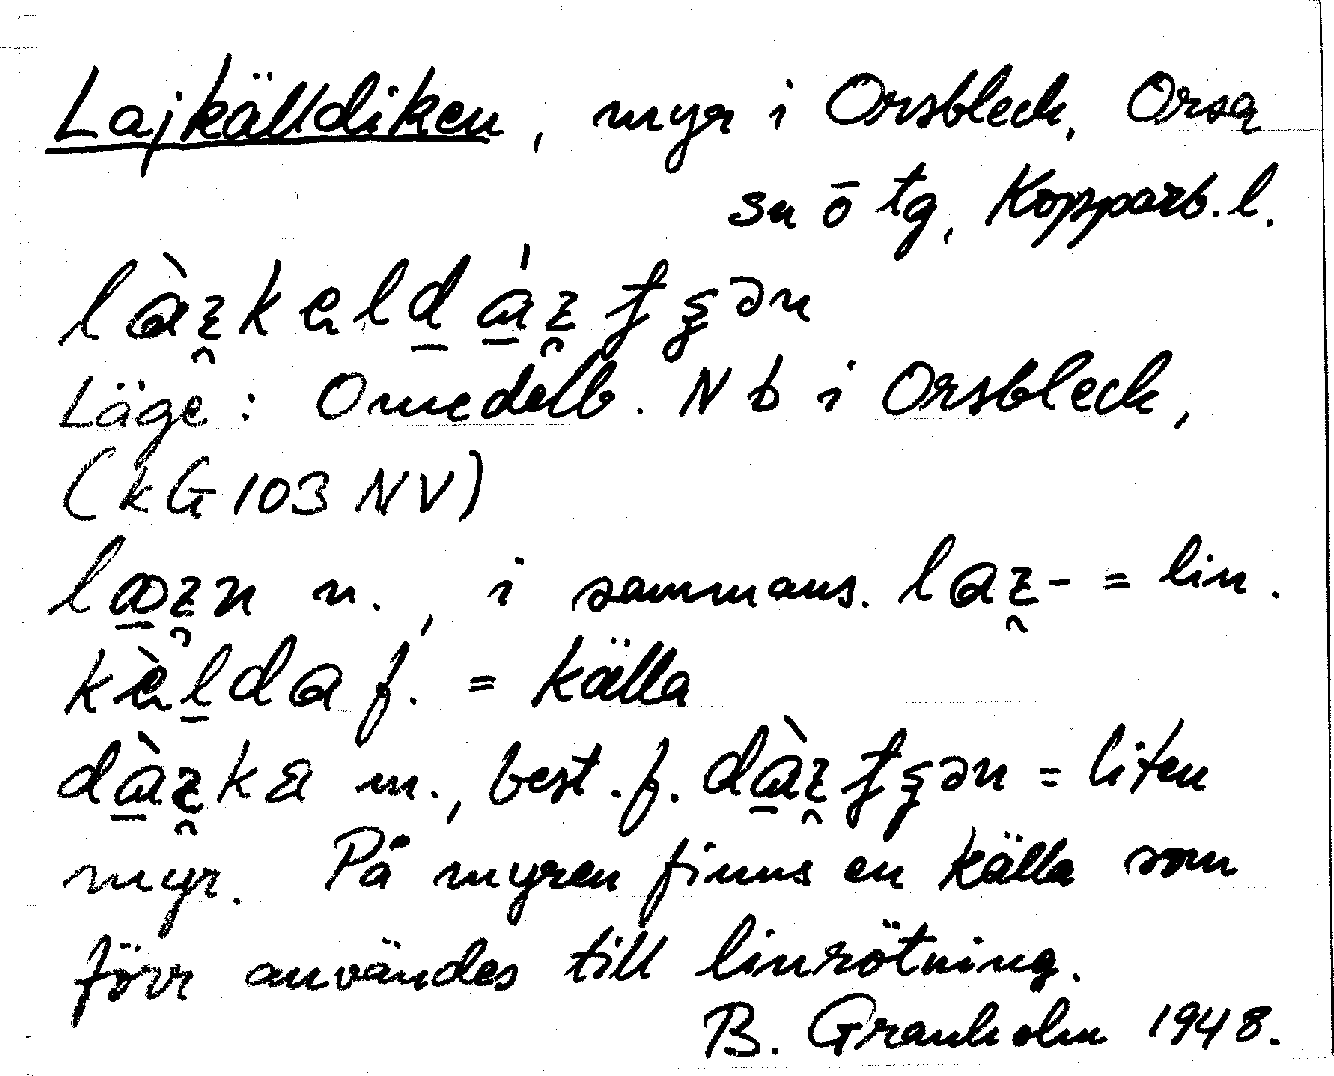 Lajkälldiken, myr i Orsbleck, Orsa
sn ō tg, Kopparb. l.
Läge: Omedelb. N b i Orsbleck,
(kG 103 NV)
n., i sammans. = lin.
f. = källa
m., best. f. = liten
myr. På myren finns en källa som
förr användes till linrötning.
B. Granholm 1948.